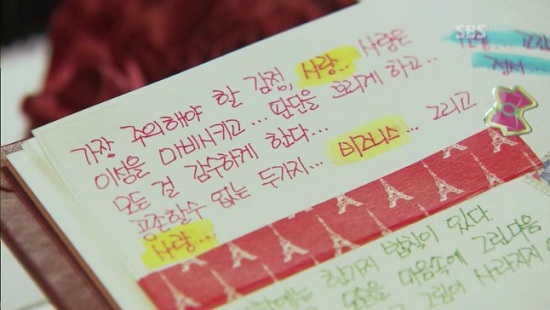 SBS
가장 주의해야 할 감정, 사랑... 사랑은
이성을 마비시키고... 판단을 흐리게 하고...
모든 걸 감수하게 한다...
공존할수 없는 두가지... 비즈니스... 그리고
사랑...
한가지 법칙이 있다.
마음속에 그린다음
사라지지